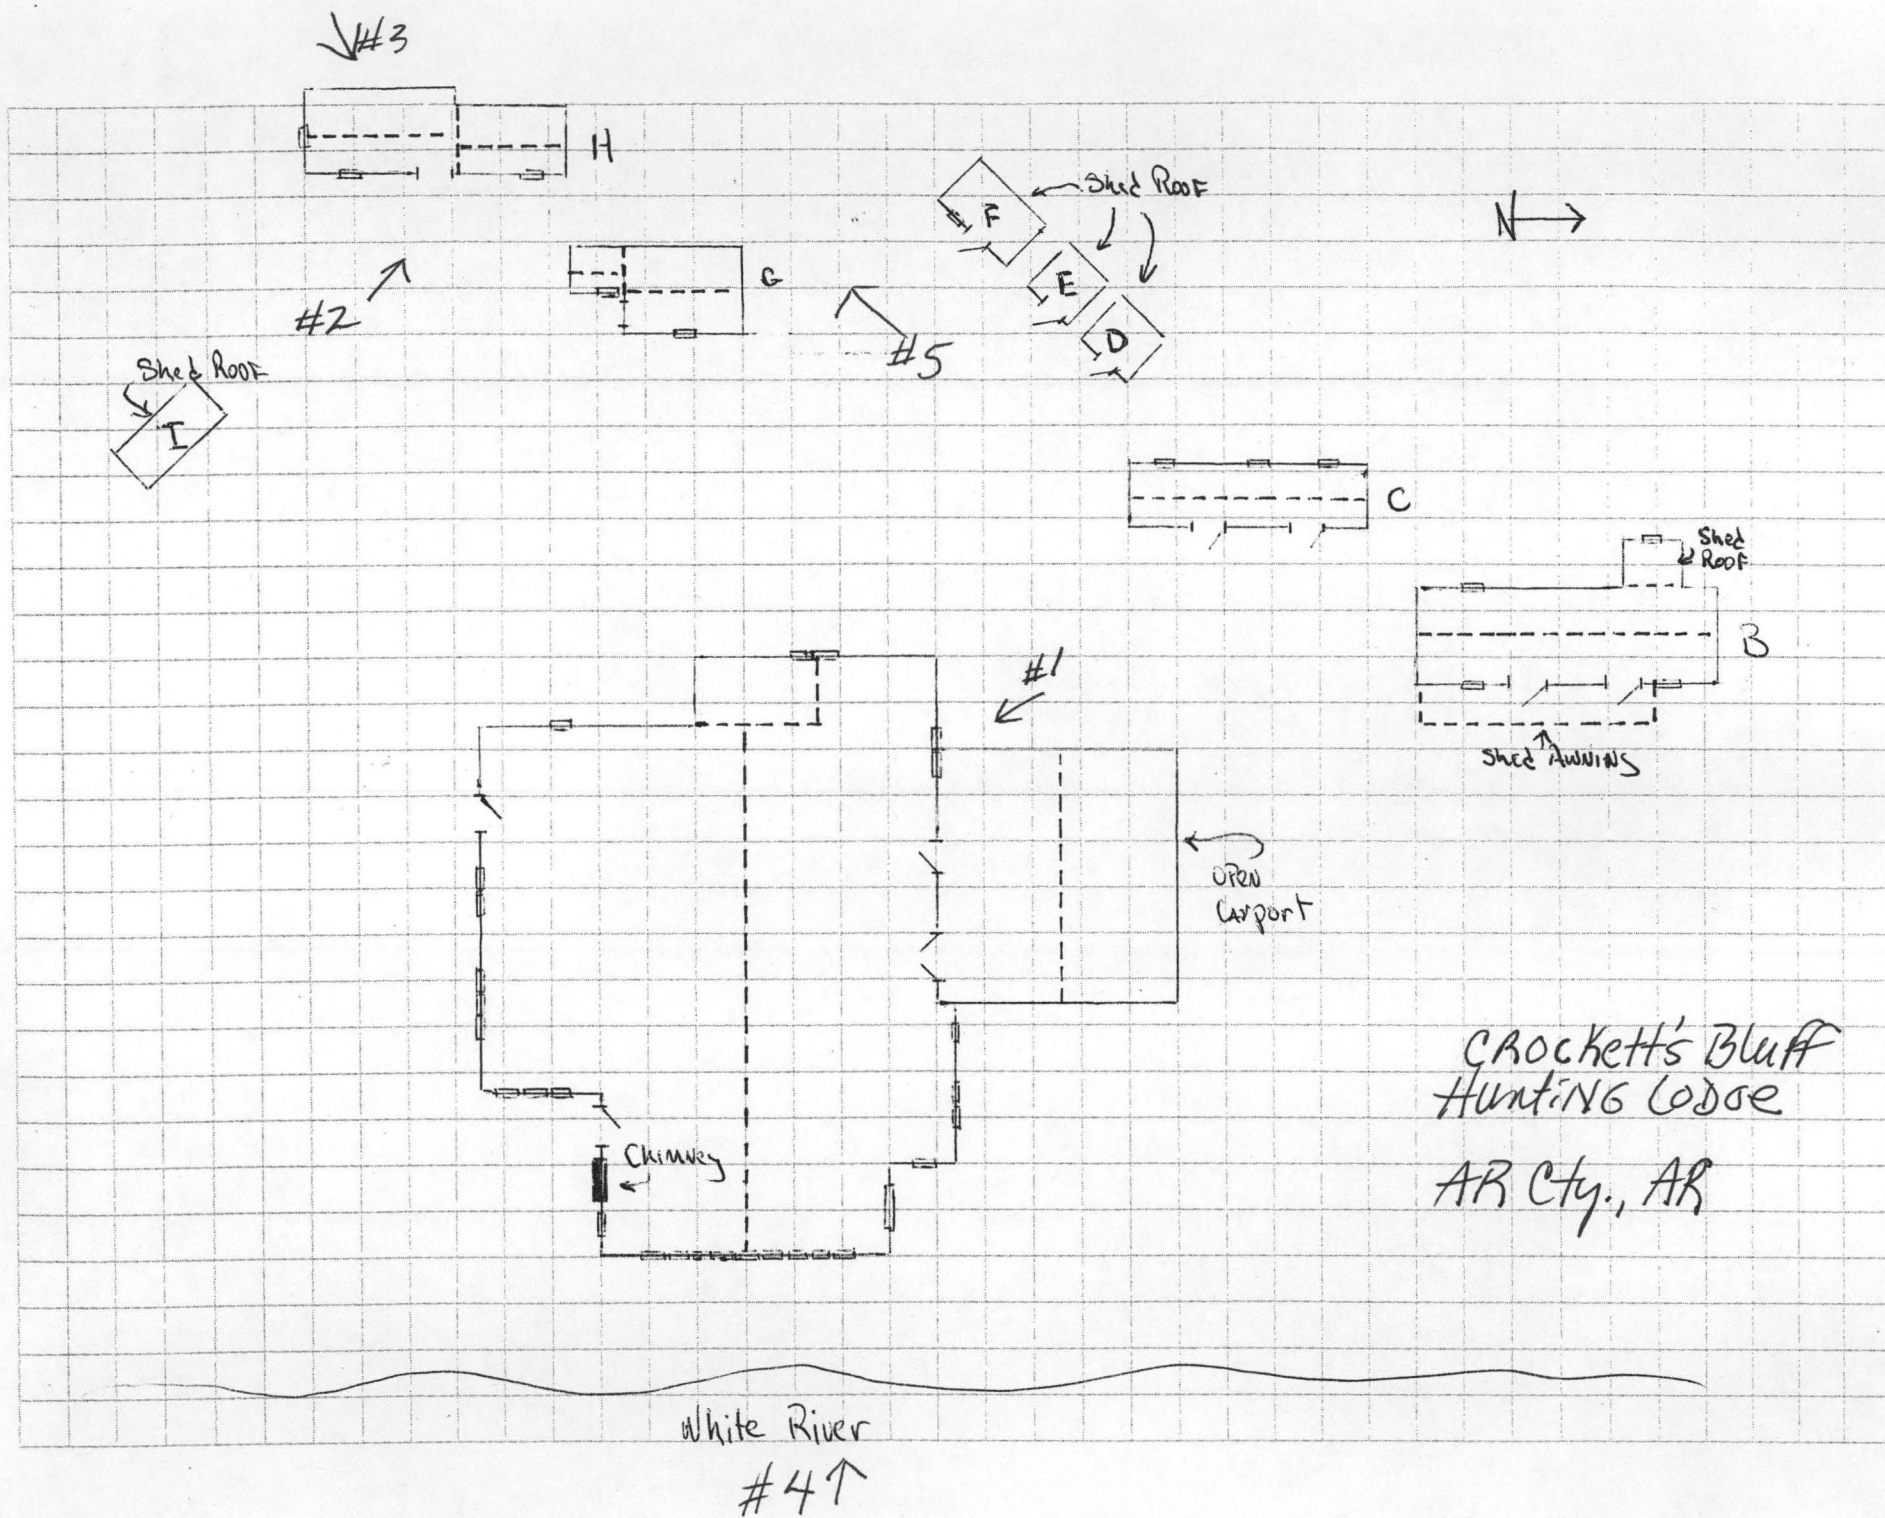 #3
H
Shed Roof
F
N
G
E
#2
D
#5
Shed Roof
I
C
Shed
Roof
B
#1
Shed Awning
Open
Carport
Crockett's Bluff
Hunting Lodge
Chimney
AR Cty., AR
White River
#4